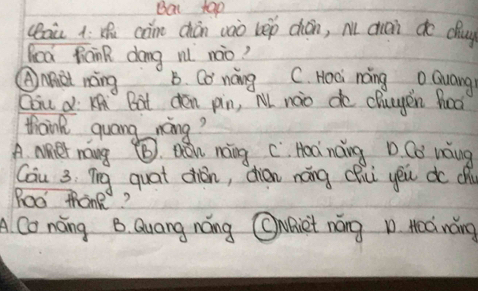 Bài tập
Câu 1: Khi cắm điện vào bếp điện, NL điện đc chuy
hoá thành dạng nl nào?
A Nhiệt năng B. Cơ năng C. Hoá năng D Quang
Câu 2: Khi bật đèn pin, NL nào đc chuyển hoá
thành quang năng?
A. Nhiệt năng B. Điện năng C. Hoá năng D. Cơ năng
Câu 3: Trg quạt điện, điện năng chủ yếu đc chu
hoá thành?
A Cơ năng B. Quang năng C Nhiệt năng D. Hoá năng